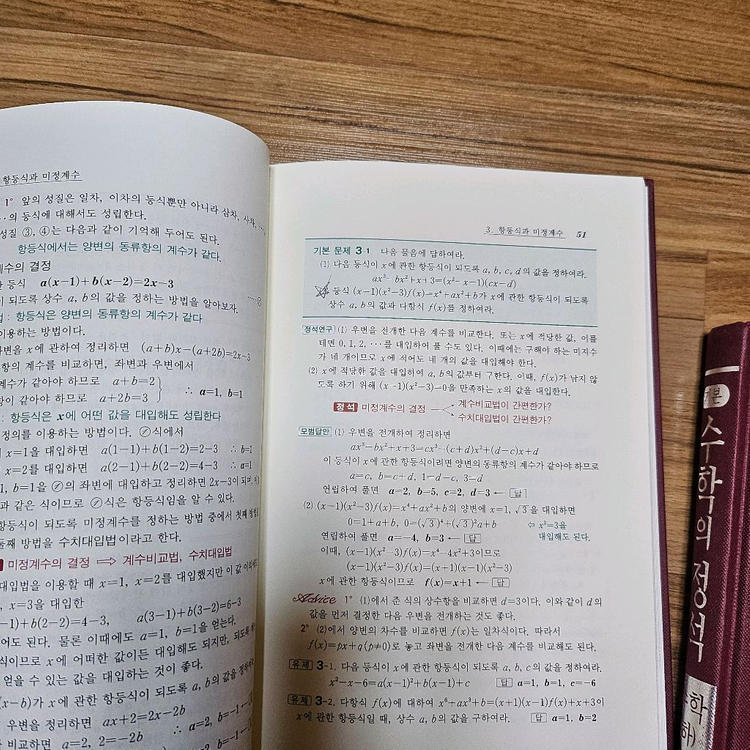 항등식과 미정계수
1° 앞의 성질은 일차, 이차의 등식뿐만 아니라 삼차, 사차,
의 등식에 대해서도 성립한다.
성질 ③, ④는 다음과 같이 기억해 두어도 된다.
항등식에서는 양변의 동류항의 계수가 같다.
계수의 결정
등식 a(x-1)+b(x-2)=2x-3
이 되도록 상수 a, b의 값을 정하는 방법을 알아보자.
: 항등식은 양변의 동류항의 계수가 같다
이용하는 방법이다.
변을 x에 관하여 정리하면 (a+b)x-(a+2b)=2x-3
항의 계수를 비교하면, 좌변과 우변에서
계수가 같아야 하므로 a+b=2
가 같아야 하므로 a+2b=3
∴ a=1, b=1
: 항등식은 x에 어떤 값을 대입해도 성립한다
정의를 이용하는 방법이다. ⊘식에서
x=1을 대입하면 a(1-1)+b(1-2)=2-3 ∴ b=1
x=2를 대입하면 a(2-1)+b(2-2)=4-3 ∴ a=1
1, b=1을 ⊘의 좌변에 대입하고 정리하면 2x-3이 되어,
과 같은 식이므로 ⊘식은 항등식임을 알 수 있다.
항등식이 되도록 미정계수를 정하는 방법 중에서 첫째 방법을
둘째 방법을 수치대입법이라고 한다.
미정계수의 결정 ⟹ 계수비교법, 수치대입법
대입법을 이용할 때 x=1, x=2를 대입했지만 이 값 이외에
x=3을 대입한
-1)+b(2-2)=4-3, a(3-1)+b(3-2)=6-3
어도 된다. 물론 이때에도 a=1, b=1을 얻는다.
수치대입법에서는 x에 어떠한 값이든 대입해도 되지만, 되도록
얻을 수 있는 값을 대입하는 것이 좋다.
x-b)가 x에 관한 항등식이 되도록 a, b의 값을
우변을 정리하면 ax+2=2x-2b
a=2, 2=-2b ∴ a=2, b=-1
3. 항등식과 미정계수 51
기본 문제 3-1 다음 물음에 답하여라.
(1) 다음 등식이 x에 관한 항등식이 되도록 a, b, c, d의 값을 정하여라.
ax³-bx²+x+3=(x²-x-1)(cx-d)
등식 (x-1)(x²-3)f(x)=x⁴+ax²+b가 x에 관한 항등식이 되도록
상수 a, b의 값과 다항식 f(x)를 정하여라.
정석연구 (1) 우변을 전개한 다음 계수를 비교한다. 또는 x에 적당한 값, 이를
테면 0, 1, 2, ···를 대입하여 풀 수도 있다. 이때에는 구해야 하는 미지수
가 네 개이므로 x에 적어도 네 개의 값을 대입해야 한다.
(2) x에 적당한 값을 대입하여 a, b의 값부터 구한다. 이때, f(x)가 남지 않
도록 하기 위해 (x-1)(x²-3)=0을 만족하는 x의 값을 대입한다.
정석 미정계수의 결정
계수비교법이 간편한가?
수치대입법이 간편한가?
모범답안 (1) 우변을 전개하여 정리하면
ax³-bx²+x+3=cx³-(c+d)x²+(d-c)x+d
이 등식이 x에 관한 항등식이려면 양변의 동류항의 계수가 같아야 하므로
a=c, b=c+d, 1=d-c, 3=d
연립하여 풀면 a=2, b=5, c=2, d=3 ← 답
(2) (x-1)(x²-3)f(x)=x⁴+ax²+b의 양변에 x=1, √3을 대입하면
0=1+a+b, 0=(√3)⁴+(√3)²a+b ⇦ x²=3을
연립하여 풀면 a=-4, b=3 ← 답 대입해도 된다.
이때, (x-1)(x²-3)f(x)=x⁴-4x²+3이므로
(x-1)(x²-3)f(x)=(x+1)(x-1)(x²-3)
x에 관한 항등식이므로 f(x)=x+1 ← 답
Advice 1° (1)에서 준 식의 상수항을 비교하면 d=3이다. 이와 같이 d의
값을 먼저 결정한 다음 우변을 전개하는 것도 좋다.
2° (2)에서 양변의 차수를 비교하면 f(x)는 일차식이다. 따라서
f(x)=px+q(p≠0)로 놓고 좌변을 전개한 다음 계수를 비교해도 된다.
유제 3-1. 다음 등식이 x에 관한 항등식이 되도록 a, b, c의 값을 정하여라.
x²-x-6=a(x-1)²+b(x-1)+c 답 a=1, b=1, c=-6
유제 3-2. 다항식 f(x)에 대하여 x⁶+ax³+b=(x+1)(x-1)f(x)+x+3이
x에 관한 항등식일 때, 상수 a, b의 값을 구하여라. 답 a=1, b=2
기본
수학의 정석